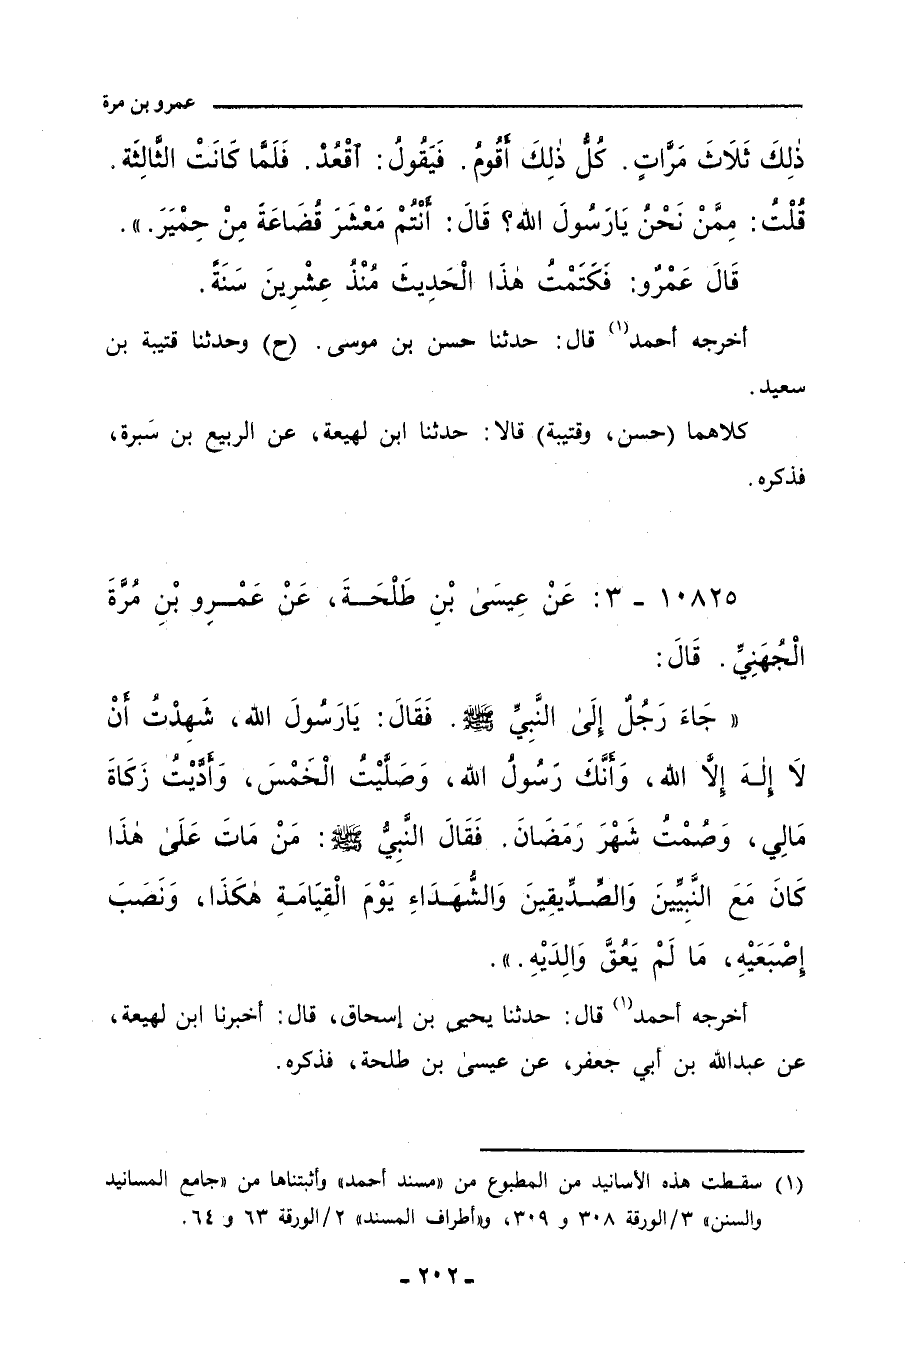 عمرو بن مرة
ذٰلِكَ ثَلَاثَ مَرَّاتٍ. كُلُّ ذٰلِكَ أَقُومُ. فَيَقُولُ: ٱقْعُدْ. فَلَمَّا كَانَتْ الثَّالِثَة.
قُلْتُ: مِمَّنْ نَحْنُ يَارَسُولَ الله؟ قَالَ: أَنْتُمْ مَعْشَرَ قُضَاعَةَ مِنْ حِمْيَرَ.».
قَالَ عَمْرٌو: فَكَتَمْتُ هٰذَا الْحَدِيثَ مُنْذُ عِشْرِينَ سَنَةً.
أخرجه أحمد(١) قال: حدثنا حسن بن موسى. (ح) وحدثنا قتيبة بن
سعيد.
كلاهما (حسن، وقتيبة) قالا: حدثنا ابن لهيعة، عن الربيع بن سَبرة،
فذكره.
١٠٨٢٥ ـ ٣: عَنْ عِيسَىٰ بْنِ طَلْحَـةَ، عَنْ عَمْـرِو بْنِ مُرَّةَ
الْجُهَنِيِّ. قَالَ:
« جَاءَ رَجُلٌ إِلَىٰ النَّبِيِّ ﷺ. فَقَالَ: يَارَسُولَ الله، شَهِدْتُ أَنْ
لَا إِلٰـهَ إِلَّا الله، وَأَنَّكَ رَسُولُ الله، وَصَلَّيْتُ الْخَمْسَ، وَأَدَّيْتُ زَكَاةَ
مَالِي، وَصُمْتُ شَهْرَ رَمَضَانَ. فَقَالَ النَّبِيُّ ﷺ: مَنْ مَاتَ عَلَىٰ هٰذَا
كَانَ مَعَ النَّبِيِّينَ وَالصِّدِّيقِينَ وَالشُّهَدَاءِ يَوْمَ الْقِيَامَـةِ هٰكَذَا، وَنَصَبَ
إِصْبَعَيْهِ، مَا لَمْ يَعُقَّ وَالِدَيْهِ.».
أخرجه أحمد(١) قال: حدثنا يحيى بن إسحاق، قال: أخبرنا ابن لهيعة،
عن عبدالله بن أبي جعفر، عن عيسىٰ بن طلحة، فذكره.
(١) سقـطت هذه الأسانيد من المطبوع من «مسند أحمد» وأثبتناها من «جامع المسانيد
والسنن» ٣/الورقة ٣٠٨ و ٣٠٩، و«أطراف المسند» ٢/الورقة ٦٣ و ٦٤.
ـ ٢٠٢ ـ